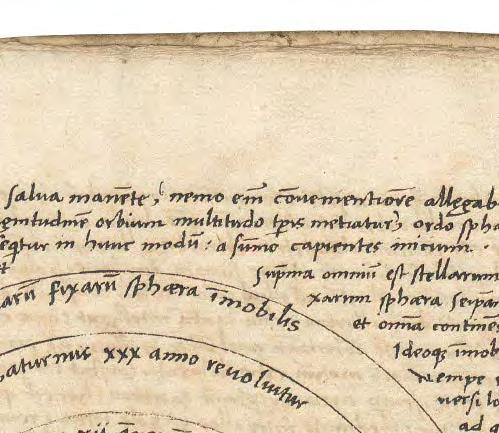 salva manēte, nemo em̄ cōvenientiorē allegab
gnitudinē orbium multitudo tp̄is metiatur, ordo sphæ
seqtur in hunc modū: a sum̄o capientes initium.
et
Suprema omniū est stellarum
xarum sphæra seipsam
et omnia continens
Ideoq̃ im̄ob
Nempe
versi lo
ad q
arū fixarū sphæra im̄obilis
aturnus xxx anno revolvitur
xii